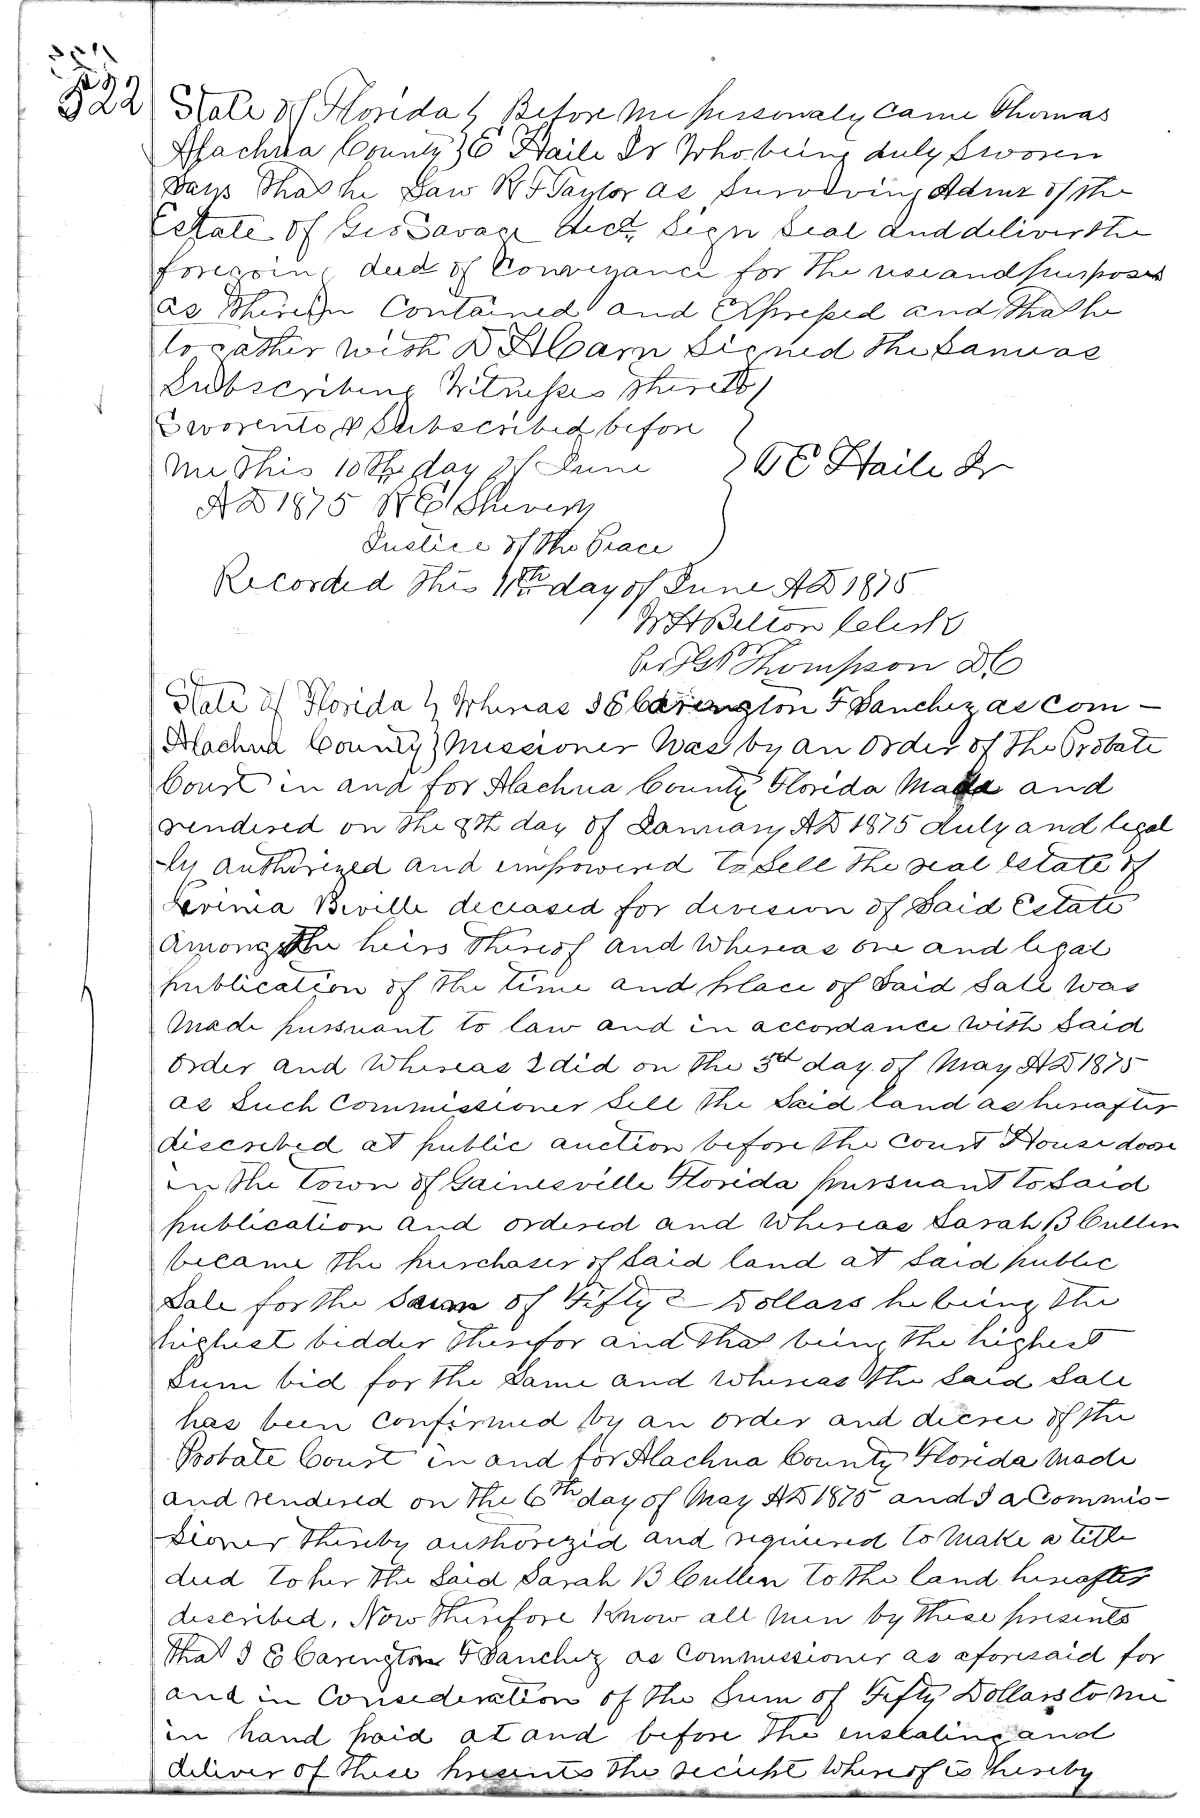 522
State of Florida } Before me personaly came Thomas
Alachua County } E Haile Jr Who being duly Sworen
Says that he Saw R F Taylor as Surviving Admr of the
Estate of Geo Savage decd, Sign Seal and deliver the
foregoing deed of Conveyance for the use and purposes
as therein Contained and Expressed and that he
to gather with D H Carn Signed the Same as
Subscribing Witnesses thereto
Sworento & Subscribed before
me this 10th day of June } T E Haile Jr
A D 1875 R E Shivery
Justice of the Peace
Recorded this 11th day of June A D 1875
W H Belton Clerk
Per J G P Thompson D C
State of Florida } Whereas I E Carington F Sanchez as com-
Alachua County } missioner Was by an order of the Probate
Court in and for Alachua County Florida Made and
rendered on the 8th day of January A D 1875 duly and legal
-ly authorized and empowered to Sell the real estate of
Levinia Beville deceased for division of Said Estate
Among the heirs thereof and Whereas one and legal
publication of the time and place of Said Sale was
made pursuant to law and in accordance with Said
order and Whereas I did on the 3rd day of May A D 1875
as Such Commissioner Sell the Said land as hereafter
discribed at public auction before the court House doore
in the town of Gainesville Florida pursuant to Said
publication and ordered and Whereas Sarah B Cullen
became the purchaser of Said land at Said public
Sale for the Sum of Fifty Dollars he being the
highest bidder therefor and that being the highest
Sum bid for the Same and Whereas the Said Sale
has been confirmed by an order and decree of the
Probate Court in and for Alachua County Florida made
and rendered on the 6th day of May A D 1875 and I a Commis-
-sioner thereby authorezid and requiered to Make a title
deed to her the Said Sarah B Cullen to the land hereafter
described. Now therefore Know all men by these presents
that I E Carington F Sanchez as Commissioner as aforesaid for
and in Consideration of the Sum of Fifty Dollars to me
in hand paid at and before the ensealing and
deliver of these presents the reciept Whereof is hereby